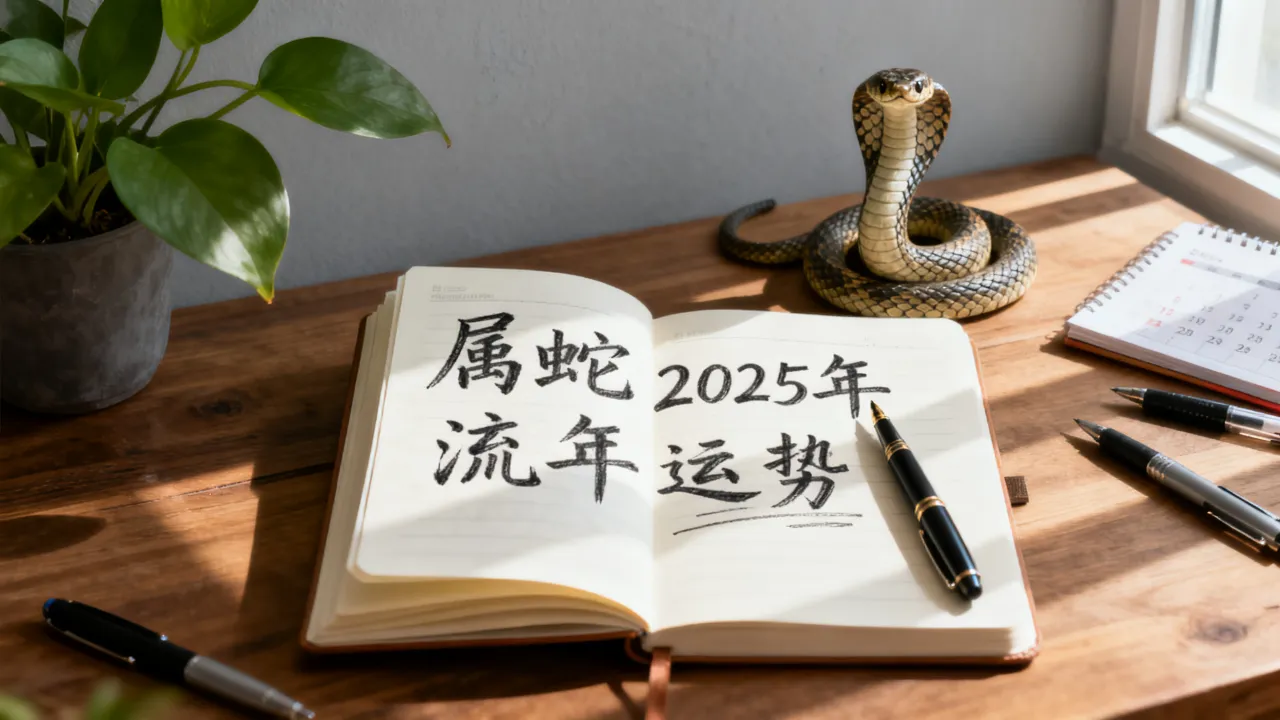 属蛇
流年
2025年
运势